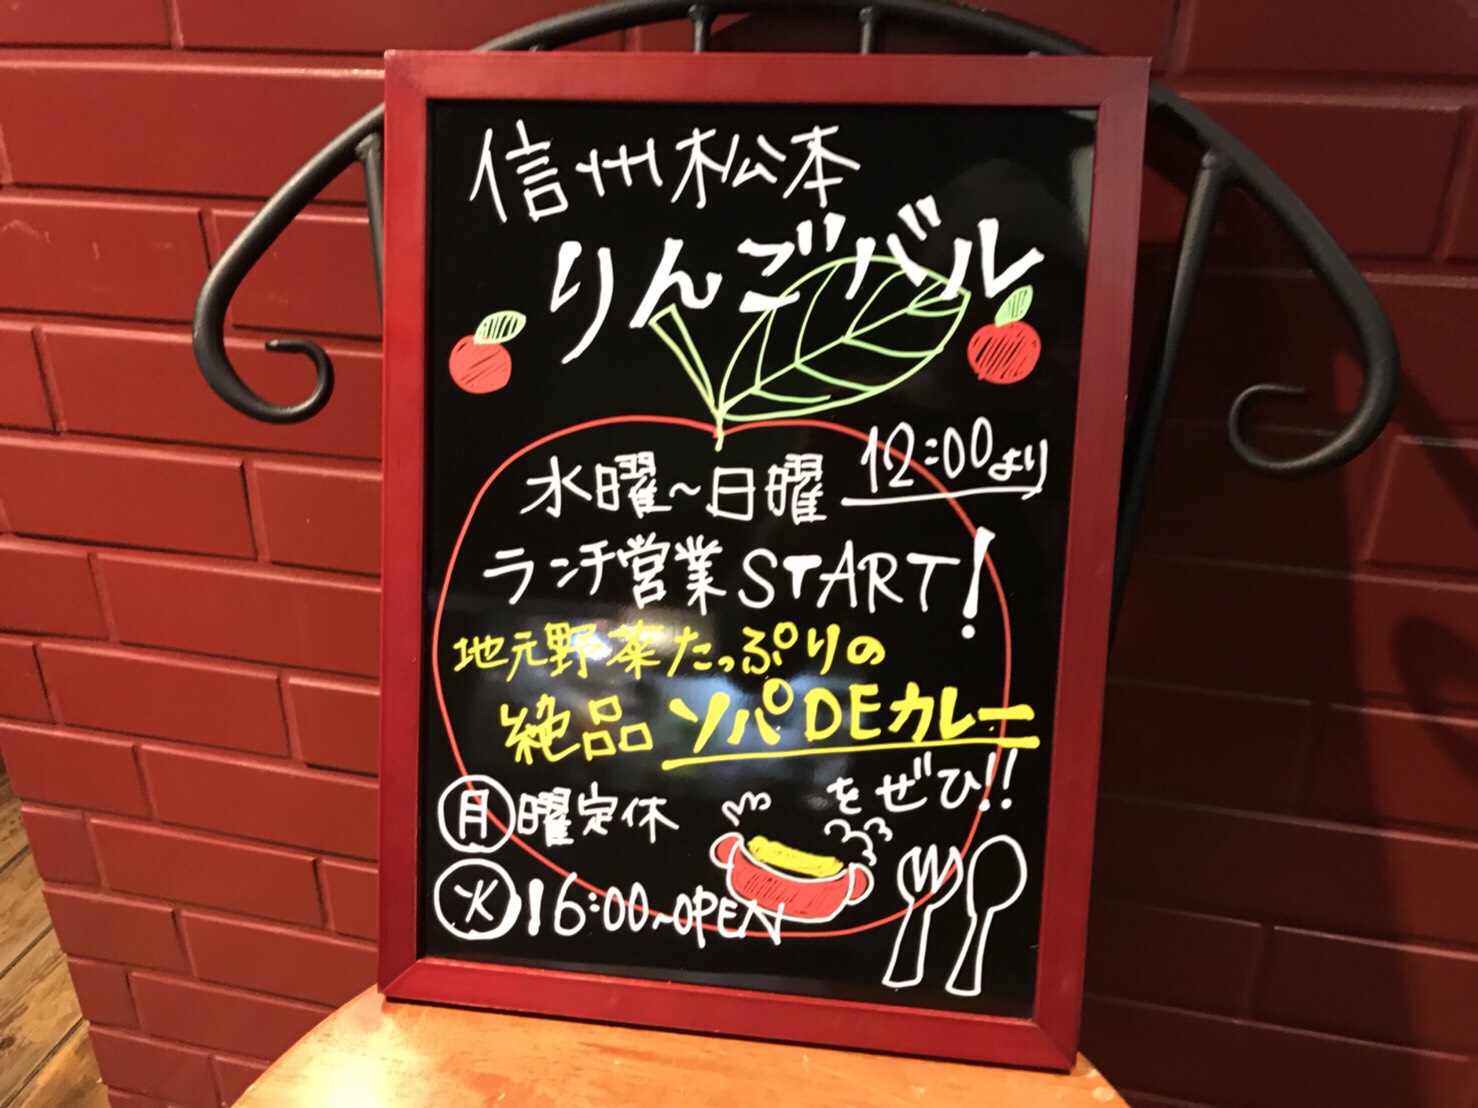 信州松本
りんごバル
水曜～日曜 12:00より
ランチ営業START!
地元野菜たっぷりの
絶品 ソパDEカレー
をぜひ!!
月曜定休
火 16:00~OPEN